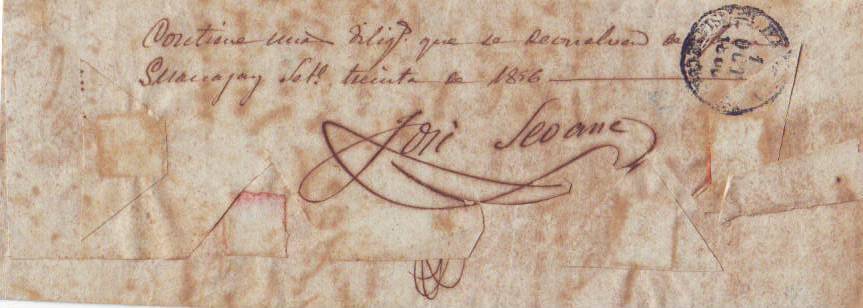 Contiene una dilig.ª que se devuelven
Guanajay Set.e treinta de 1856
José Seoane
1
OCT